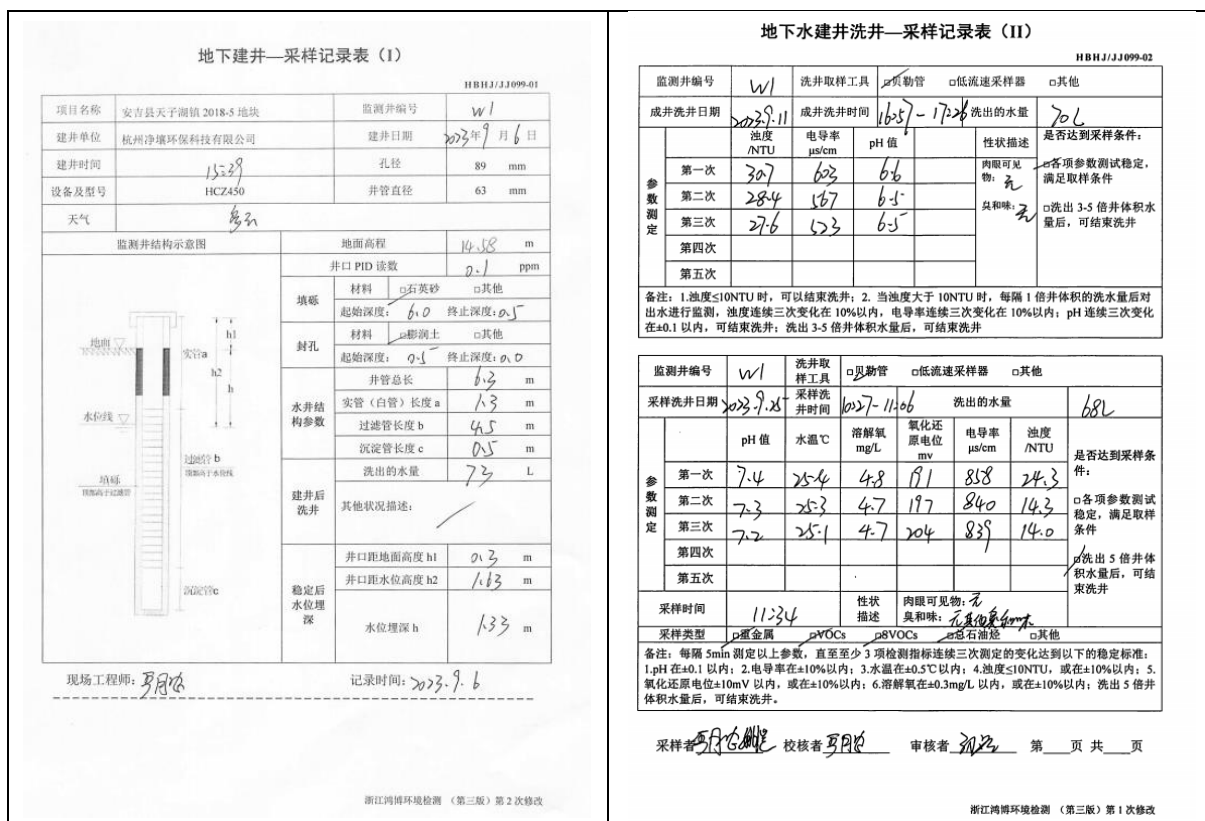 地下建井—采样记录表（I）
HBHJ/JJ099-01
项目名称 安吉县天子湖镇 2018-5 地块 监测井编号 W1
建井单位 杭州净壤环保科技有限公司 建井日期 2023年9月6日
建井时间 15:39 孔径 89 mm
设备及型号 HCZ450 井管直径 63 mm
天气 多云
监测井结构示意图 地面高程 14.58 m
井口 PID 读数 0.1 ppm
填砾 材料 □石英砂 □其他
起始深度：6.0 终止深度：0.5
封孔 材料 □膨润土 □其他
起始深度：0.5 终止深度：0.0
水井结构参数 井管总长 6.3 m
实管（白管）长度 a 1.3 m
过滤管长度 b 4.5 m
沉淀管长度 c 0.5 m
建井后洗井 洗出的水量 73 L
其他状况描述：
稳定后水位埋深 井口距地面高度 h1 0.3 m
井口距水位高度 h2 1.63 m
水位埋深 h 1.33 m
地面
实管a
h1
h2
h
水位线
过滤管 b
顶部高于水位线
填砾
顶部高于过滤管
沉淀管c
现场工程师： 记录时间：2023.9.6
浙江鸿博环境检测 （第三版）第 2 次修改
地下水建井洗井—采样记录表（II）
HBHJ/JJ099-02
监测井编号 W1 洗井取样工具 □贝勒管 □低流速采样器 □其他
成井洗井日期 2023.9.11 成井洗井时间 16:57-17:26 洗出的水量 70L
参数测定 浊度/NTU 电导率μs/cm pH 值 性状描述 是否达到采样条件：
第一次 30.7 603 6.6 肉眼可见物：无 □各项参数测试稳定，满足取样条件
第二次 28.4 567 6.5 臭和味：无 □洗出 3-5 倍井体积水量后，可结束洗井
第三次 27.6 533 6.5
第四次
第五次
备注：1.浊度≤10NTU 时，可以结束洗井；2. 当浊度大于 10NTU 时，每隔 1 倍井体积的洗水量后对
出水进行监测，浊度连续三次变化在 10%以内，电导率连续三次变化在 10%以内；pH 连续三次变化
在±0.1 以内，可结束洗井；洗出 3-5 倍井体积水量后，可结束洗井
监测井编号 W1 洗井取样工具 □贝勒管 □低流速采样器 □其他
采样洗井日期 2023.9.25 采样洗井时间 10:27-11:06 洗出的水量 68L
参数测定 pH 值 水温℃ 溶解氧mg/L 氧化还原电位mv 电导率μs/cm 浊度/NTU 是否达到采样条件：
第一次 7.4 25.4 4.8 191 858 24.3
第二次 7.3 25.3 4.7 197 840 14.3 □各项参数测试稳定，满足取样条件
第三次 7.2 25.1 4.7 204 839 14.0
第四次 □洗出 5 倍井体积水量后，可结束洗井
第五次
采样时间 11:34 性状描述 肉眼可见物：无
臭和味：无其他臭和味
采样类型 □重金属 □VOCs □SVOCs □总石油烃 □其他
备注：每隔 5min 测定以上参数，直至至少 3 项检测指标连续三次测定的变化达到以下的稳定标准：
1.pH 在±0.1 以内；2.电导率在±10%以内；3.水温在±0.5℃以内；4.浊度≤10NTU，或在±10%以内；5.
氧化还原电位±10mV 以内，或在±10%以内；6.溶解氧在±0.3mg/L 以内，或在±10%以内；洗出 5 倍井
体积水量后，可结束洗井。
采样者 校核者 审核者 第 页 共 页
浙江鸿博环境检测 （第三版）第 1 次修改